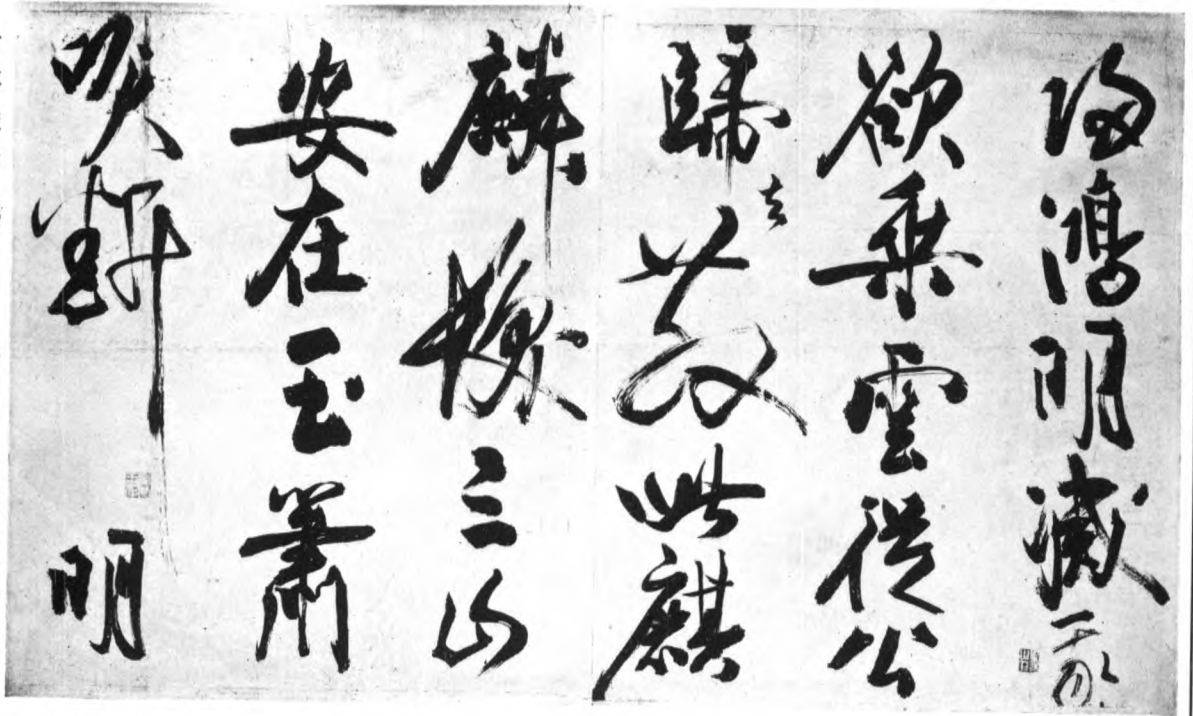 归鴻明滅我
欲乘雲從公
歸去散此麒
麟髮三山
安在玉簫
吹斷明